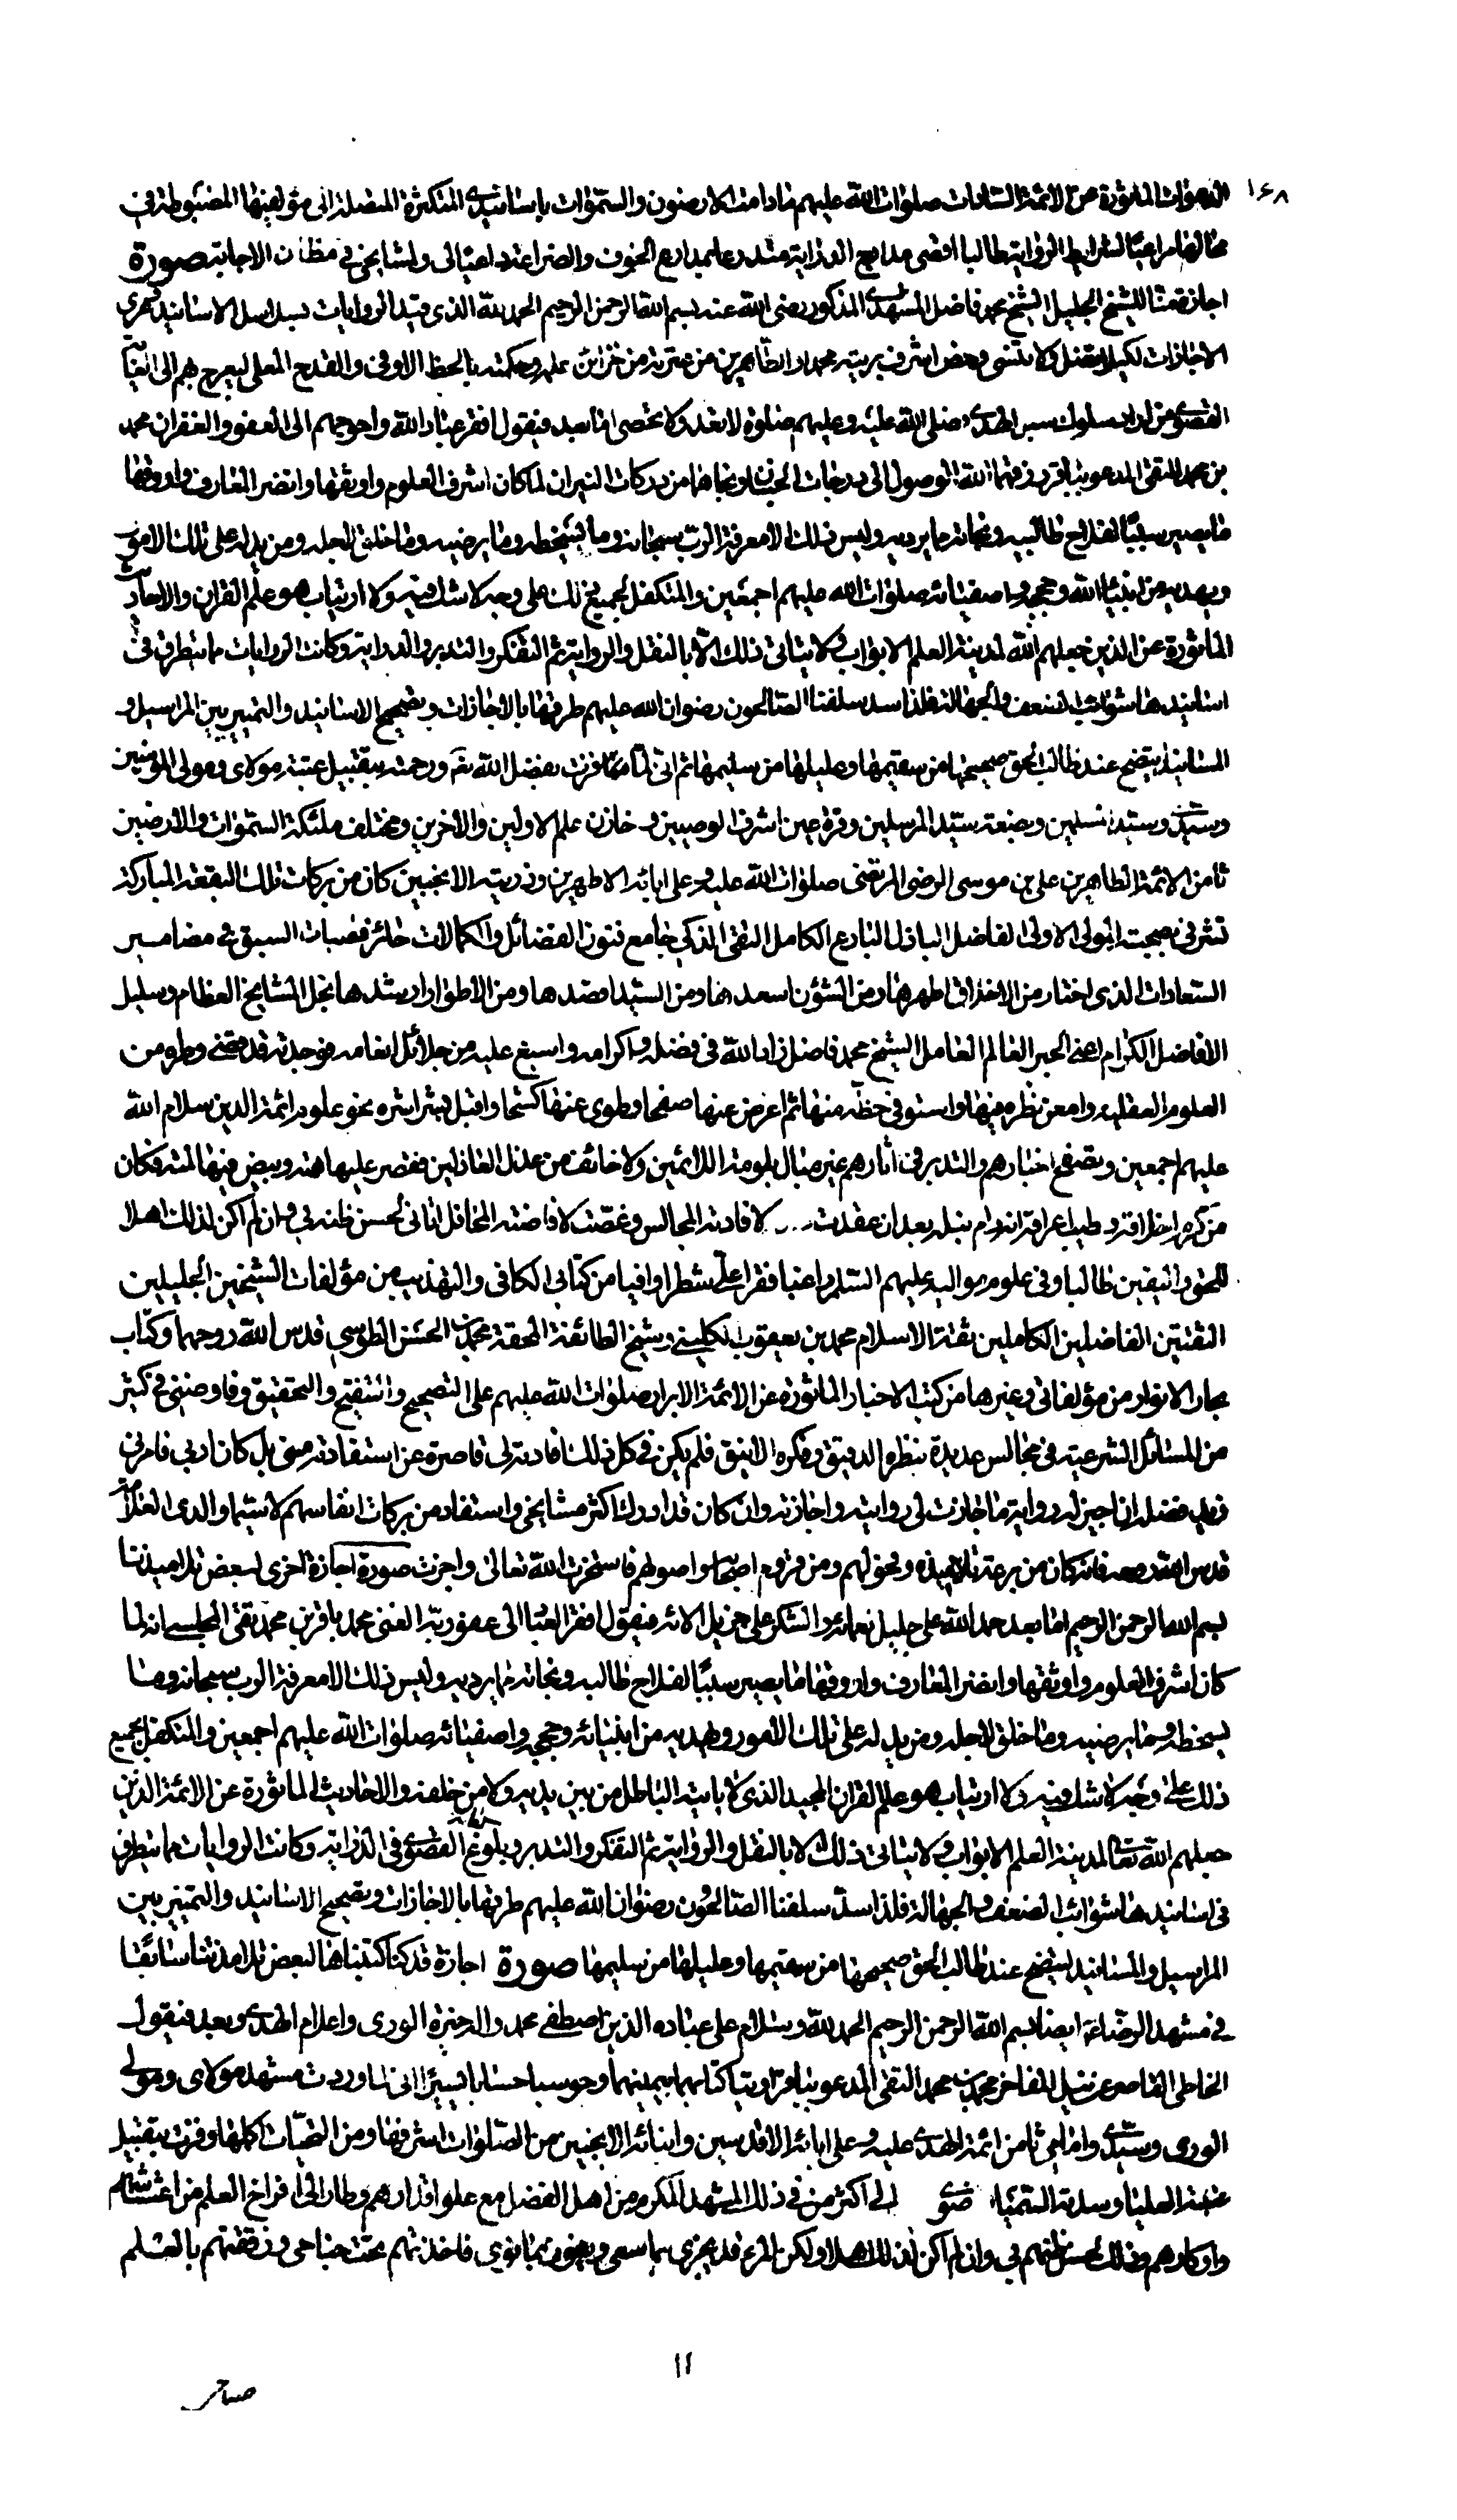 ١٦٨
الدعوات المأثورة عن الائمة السادات صلوات الله عليهم ما دامت الارضون والسموات باسانيدي المتكثرة المتصلة الى مؤلفيها المضبوطة في
محالها مراعيا لشرايط الرواية طالبا اقصى مدارج الدراية متدرعا بمدارع الخوف والضراعة داعيا لي ولمشايخي في مظان الاجابة صورة
اجازتنا للشيخ الجليل الشيخ محمد فاضل المشهدي المذكور رضي الله عنه بسم الله الرحمن الرحيم الحمد لله الذي قيد الروايات بسلاسل الاسانيد
الاجازات لكيلا تفتل ولا تنسى وخص اشرف بريته محمدا والطاهرين من عترته من خزائن علمه وحكمته بالحظ الاوفى والقدح المعلى ليعرج بهم الى
القصوى من اراد سلوك سبل الهدى صلى الله عليه وعليهم صلوة لا تعد ولا تحصى اما بعد فيقول افقر عباد الله واحوجهم الى العفو والغفران محمد
بن محمد التقي المدعو بباقر رزقهما الله الوصول الى درجات الجنان ونجاهما من دركات النيران لما كان اشرف العلوم واوثقها وانضر المعارف واروقها
ما يصير سببا لفلاح طالبيه ونجاته مما يرديه وليس ذلك الا معرفة الرب سبحانه وما يسخطه وما يرضيه وما خلق لاجله ومن يدله على تلك الامور
ويهديه من انبياء الله وحججه واصفيائه صلوات الله عليهم اجمعين والمتكفل لجميع ذلك على وجه لا شك فيه ولا ارتياب هو علم القران والاحاديث
المأثورة عن الذين جعلهم الله لمدينة العلم الابواب ولا يتأتى ذلك الا بالنقل والرواية ثم التفكر والتدبر والدراية وكانت الروايات مما يتطرق في
اسانيدها شوائب الضعف والجهالة فلذا سد سلفنا الصالحون رضوان الله عليهم طرقها بالاجازات وتصحيح الاسانيد والتمييز بين المراسيل و
المسانيد ليتضح عند طالب الحق صحيحها من سقيمها وعليلها من سليمها ثم اني لما فزت بفضل الله تعه ورحمته بتقبيل عتبة مولاي ومولى المؤمنين
وسيدي وسيد المسلمين وبضعة سيد المرسلين وقرة عين اشرف الوصيين و خازن علم الاولين والاخرين ومختلف ملئكة السموات والارضين
ثامن الائمة الطاهرين علي بن موسى الرضي المرتضى صلوات الله عليه وعلى ابائه الاطهرين وذريته الانجبين كان من بركات تلك البقعة المباركة
تشرفي بصحبة المولى الاولى الفاضل الباذل البارع الكامل التقي الذكي جامع فنون الفضائل والكمالات حائز قصبات السبق في مضامير
السعادات الذي اختار من الاخلاق اطهرها ومن الشؤن اسعدها ومن السبيل اقصدها ومن الاطوار ارشدها نجل المشايخ العظام وسليل
الافاضل الكرام اعني الحبر العالم العامل الشيخ محمد فاضل زاد الله في فضله واكرامه واسبغ عليه من جلائل انعامه فوجدته قد قضى وطره من
العلوم العقلية وامعن نظره فيها واستوفى حظه منها ثم اعرض عنها صفحا وطوى عنها كشحا واقبل بشراشره نحو علوم ائمة الدين سلام الله
عليهم اجمعين وتصفح اخبارهم والتدبر في آثارهم غير مبال بلومة اللائمين ولا خائف من عذل العاذلين فقصر عليها همته وبيض فيها لمته فكان
من كرم اخلاقه وطيب اعراقه انه ام بنبله بعد ان عقدت لافادته المجالس وغصت لافاضته المحافل اتاني لحسن ظنه بي وان لم اكن لذلك اهلا
للحق واليقين طالبا وفي علوم مواليه عليهم السلام راغبا فقرأ علي شطرا وافيا من كتابي الكافي والتهذيب من مؤلفات الشيخين الجليلين
الثقتين الفاضلين الكاملين ثقة الاسلام محمد بن يعقوب الكليني وشيخ الطائفة المحقة محمد بن الحسن الطوسي قدس الله روحهما وكتاب
بحار الانوار من مؤلفاتي وغيرها من كتب الاخبار المأثورة عن الائمة الابرار صلوات الله عليهم على التصحيح والتنقيح والتحقيق وفاوضني في كثير
من المسائل الشرعية في مجالس عديدة بنظره الدقيق وفكره الانيق فلم يكن في كل ذلك افادته لي قاصرة عن استفادته مني بل كان اربى فامرني
فضله ان اجيز له رواية ما جازت لي روايته واجازته وان كان قد ادرك اكثر مشايخي واستفاد من بركات انفاسهم لا سيما والدي العلامة
قدس الله روحه فانه كان من تلاميذه وفحولهم ومن فروع اصحابه واصولهم فاستخرت الله تعالى واجزت صورة اجازة اخرى لبعض تلاميذنا
بسم الله الرحمن الرحيم اما بعد حمد الله على جليل نعمائه والشكر على جزيل الائه فيقول افقر العباد الى عفو ربه الغني محمد باقر بن محمد تقي المجلسي انه لما
كان اشرف العلوم واوثقها وانضر المعارف واروقها ما يصير سببا لفلاح طالبه ونجاته مما يرديه وليس ذلك الا معرفة الرب سبحانه وما
يسخطه وما يرضيه وما خلق لاجله ومن يدله على تلك الامور ويهديه من انبيائه وحججه واصفيائه صلوات الله عليهم اجمعين والمتكفل بجميع
ذلك على وجه لا شك فيه ولا ارتياب هو علم القران المجيد الذي لا يأتيه الباطل من بين يديه ولا من خلفه والاحاديث المأثورة عن الائمة الذين
جعلهم الله تعالى لمدينة العلم الابواب ولا يتأتى ذلك الا بالنقل والرواية ثم التفكر والتدبر وبلوغ القصوى في الدراية وكانت الروايات مما يتطرق
في اسانيدها شوائب الضعف والجهالة فلذا سد سلفنا الصالحون رضوان الله عليهم طرقها بالاجازات وتصحيح الاسانيد والتمييز بين
المراسيل والمسانيد ليتضح عند طالب الحق صحيحها من سقيمها وعليلها من سليمها صورة اجازة قد كنا كتبناها لبعض تلامذتنا سابقا
في مشهد الرضا ايضا بسم الله الرحمن الرحيم الحمد لله وسلام على عباده الذين اصطفى محمد واله خيرة الورى واعلام الهدى وبعد فيقول
الخاطي القاصر عن نيل المفاخر محمد بن محمد التقي المدعو بباقر اوتيا كتابهما بيمينهما وحوسبا حسابا يسيرا اني لما وردت مشهد مولاي ومولى
الورى وسيدي وامامي ثامن ائمة الهدى عليه وعلى ابائه الاقدسين وابنائه الانجبين من الصلوات اشرفها ومن التحيات اكملها وفزت بتقبيل
عتبته العليا وسدته السمياء ضوى الي اكثر من في ذلك المشهد المكرم من اهل الفضل مع علو اقدارهم وطار الي افراخ العلم من اعشاشهم
واوكارهم وذلك لحسن ظنهم بي وان لم اكن لذلك اهلا ولكن المرء قد يجزى بما سعى ويفوز بما نوى فاخذتهم تحت جناحي وزققتهم بالعلم
١١